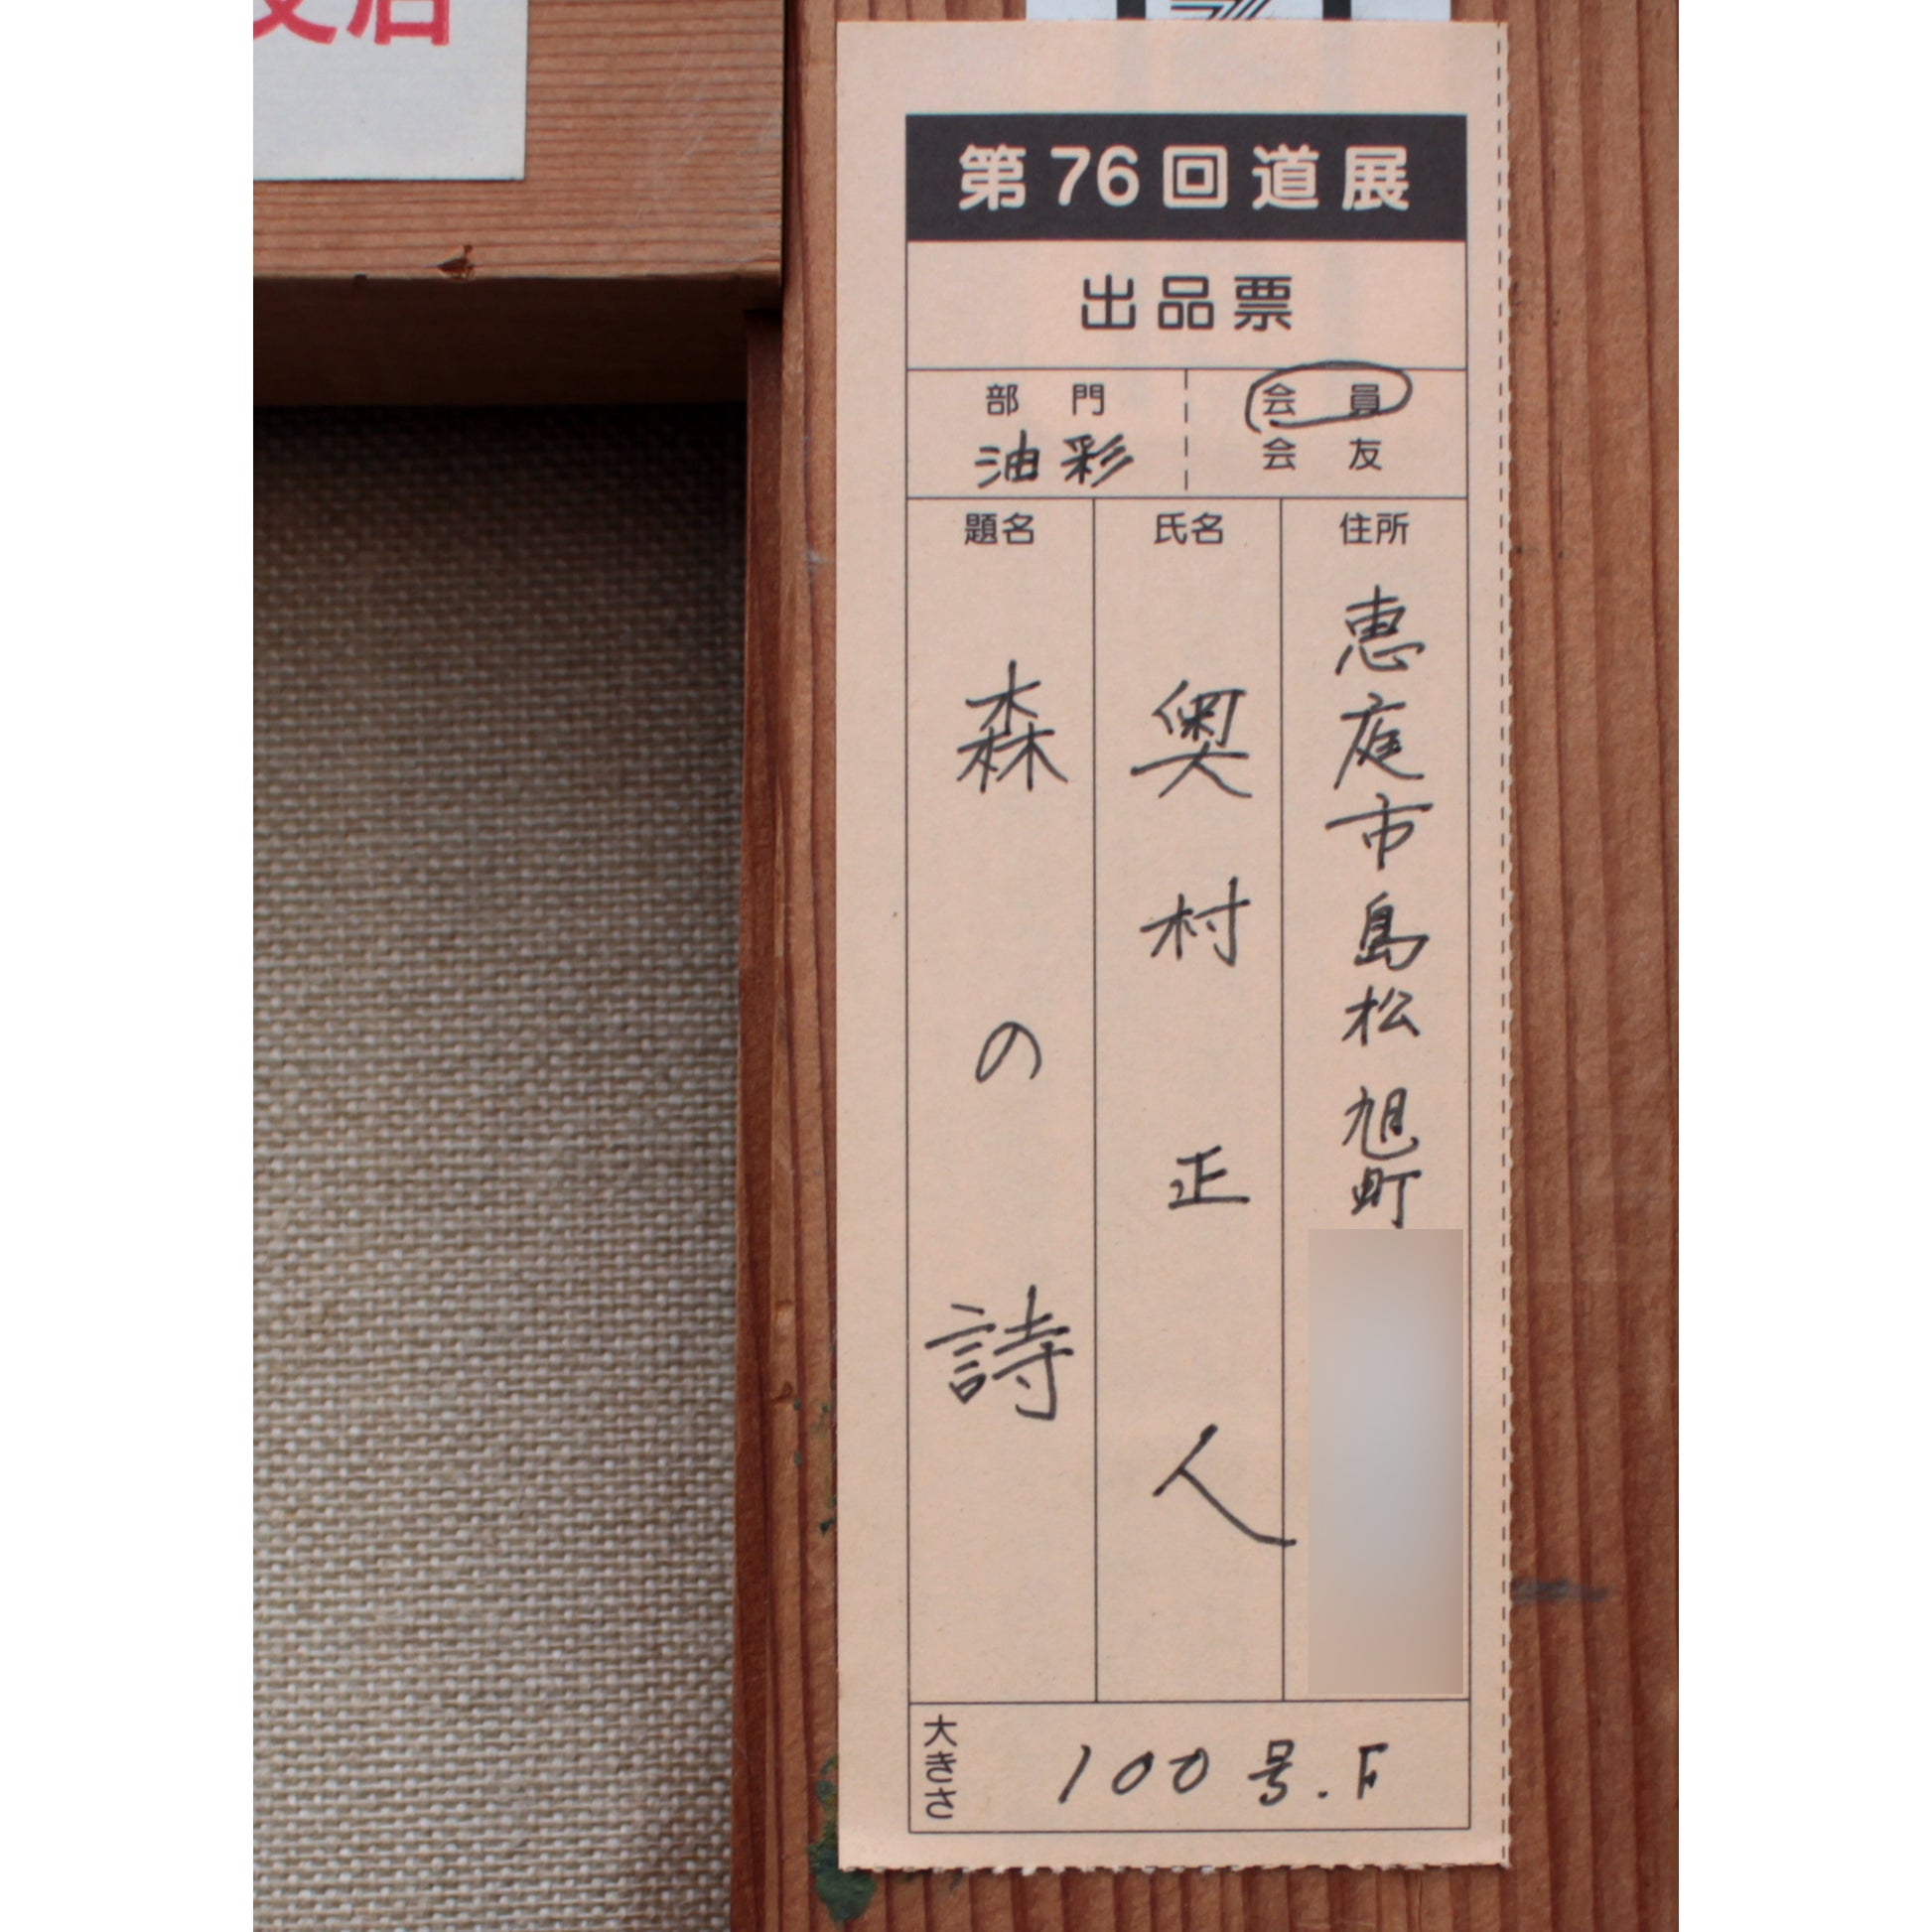 支店
第76回道展
出品票
部門
油彩
会員
会友
住所
恵庭市島松旭町
氏名
奥村正人
題名
森の詩
大きさ
100号.F